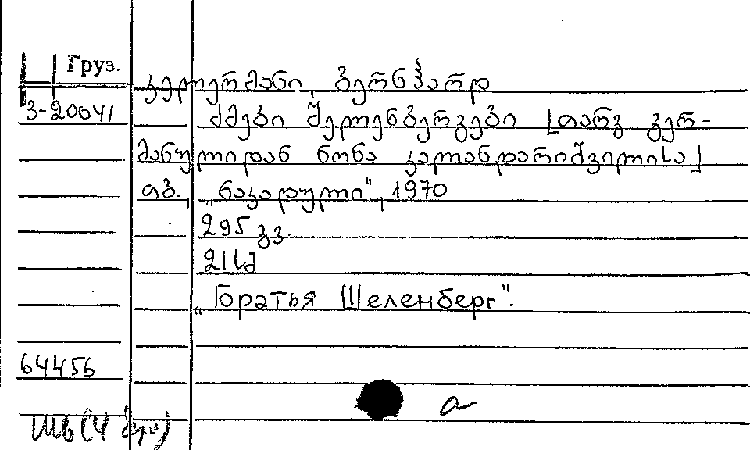 Груз.
კელერმანი, ბერნჰარდ
3-20041
ძმები შელენბერგები [თარგ. გერ-
მანულიდან ნონა კალანდარიშვილისა]
თბ., „ნაკადული", 1970
295 გვ.
21სმ
„Боратья Шеленберг".
64456